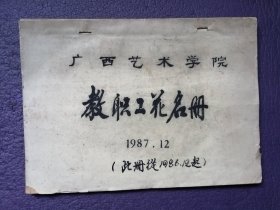 广西艺术学院
教职工花名册
1987.12
(此册从1986.12起)